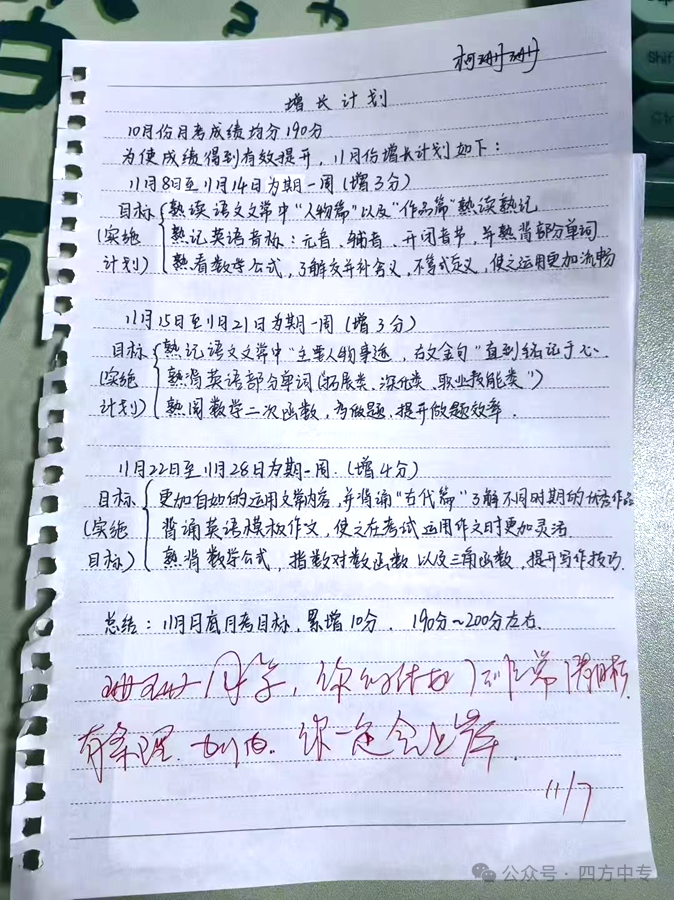 柯珊珊
增长计划
10月份月考成绩均分190分
为使成绩得到有效提升，11月份增长计划如下：
11月8日至11月14日为期一周（增3分）
目标 熟读语文文学中"人物篇"以及"作品篇"熟读熟记
（实施 熟记英语音标：元音、辅音、开闭音节，并熟背部分单词
计划） 熟看数学公式，了解交并补含义，不等式定义，使之运用更加流畅
11月15日至11月21日为期一周（增3分）
目标 熟记语文文学中"主要人物事迹，古文金句"直到铭记于心
（实施 熟背英语部分单词（拓展类、深化类、职业技能类"）
计划） 熟阅数学二次函数，多做题，提升做题效率．
11月22日至11月28日为期一周．（增4分）
目标 更加自如的运用文常内容，并背诵"古代篇"了解不同时期的优秀作品
（实施 背诵英语模板作文，使之在考试运用作文时更加灵活
目标） 熟背数学公式，指数对数函数以及三角函数，提升写作技巧．
总结：11月月底月考目标，累增10分．190分～200分左右．
珊珊同学，你的计划 非常 目标
有条理． 你一定会上岸．
11/7
公众号·四方中专